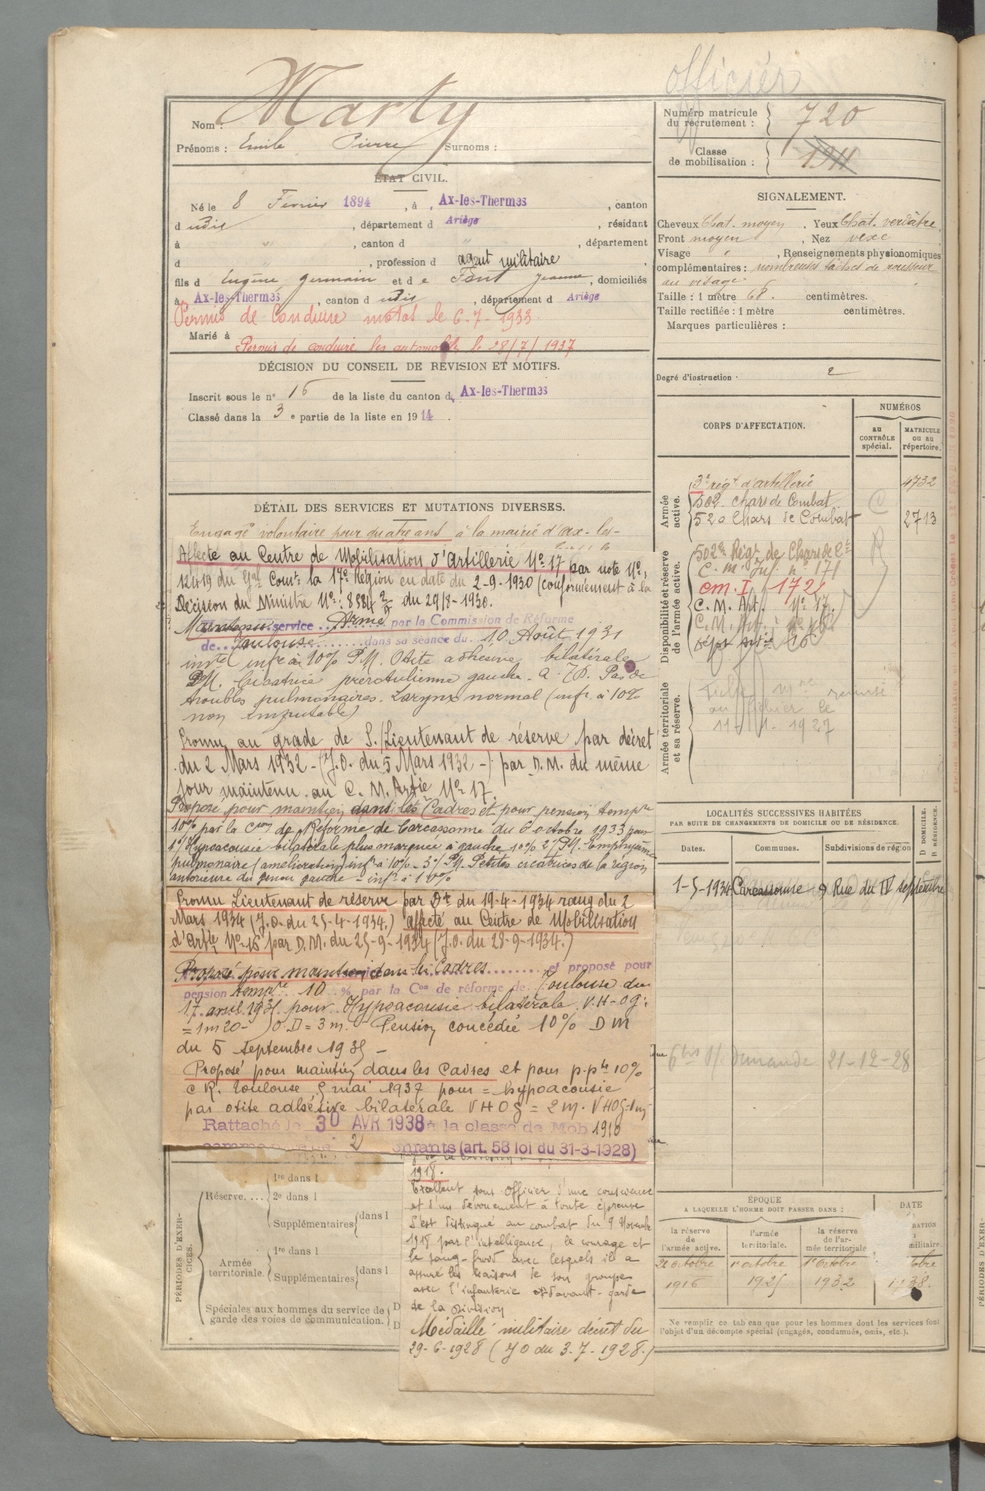 officier
Nom : Marty
Prénoms : Emile Pierre Surnoms :
Numéro matricule du recrutement : 720
Classe de mobilisation : 1911
ÉTAT CIVIL.
Né le 8 Fevrier 1894, à Ax-les-Thermes, canton
d udis, département d Ariège, résidant
à " , canton d " , département
d , profession d agent militaire
fils d Eugène germain et de Font Jeanne, domiciliés
à Ax-les-Thermes, canton d udis, département d Ariège
Permis de Conduire motos le 6-7-1933
Marié à
Permis de conduire les automobile le 28/7/1937
SIGNALEMENT.
Cheveux Chat. moyen. Yeux Chat. verdâtre
Front moyen, Nez vexe
Visage , Renseignements physionomiques
complémentaires : nombreuses taches de rousseur
au visage
Taille : 1 mètre 68. centimètres.
Taille rectifiée : 1 mètre centimètres.
Marques particulières :
Degré d'instruction : 2
DÉCISION DU CONSEIL DE RÉVISION ET MOTIFS.
Inscrit sous le n° 15 de la liste du canton d Ax-les-Thermes
Classé dans la 3e partie de la liste en 1914
DÉTAIL DES SERVICES ET MUTATIONS DIVERSES.
Engagé volontaire pour quatre ans à la mairie d'Ax-les-
Affecté au Centre de Mobilisation d'Artillerie N° 17 par note N°
12419 du Gal Comt la 17e Région en date du 2-9-1930 (conformément à la
Décision du Ministre N° 8884 du 29/8-1930.
Maintenu service Armé par la Commission de Réforme
de Toulouse dans sa séance du 10 Août 1931
invté infre à 10% P.M. Otite adhésive bilatérale
P.M. Cicatrice préroculienne gauche. Pas de
troubles pulmonaires. Larynx normal (infr. à 10%
non imputable)
Promu au grade de S./Lieutenant de réserve par décret
du 2 Mars 1932 - (J.O. du 5 Mars 1932 -) par D.M. du même
jour maintenu au C.M. Artie N° 17.
Proposé pour maintien dans les Cadres et pour pension tempre
10% par la Con de Réforme de Carcassonne du 6 octobre 1933 pour
1° Hypoacousie bilatérale plus marquée à gauche 10% 2° P.M. Emphysème
pulmonaire (amélioration) infr à 10% - 3° P.M. Petites cicatrices de la région
antérieure du genou gauche - infr à 10%
Promu Lieutenant de réserve par Dt du 19-4-1934 rang du 2
Mars 1934 (J.O. du 25-4-1934.) affecté au Centre de Mobilisation
d'Artie N° 15 par D.M. du 25-9-1934 (J.O. du 29-9-1934.)
Proposé pour maintien dans les Cadres et proposé pour
pension tempre 10 % par la Con de réforme de Toulouse du
17 avril 1935 pour Hypoacousie bilatérale V.H-OG.
= 1m20 - O.D = 3 m. Pension concédée 10% D M
du 5 septembre 1935 -
Proposé pour maintien dans les Cadres et pour p.pte 10%
C.R. Toulouse 5 mai 1937 pour = hypoacousie
par otite adhésive bilatérale VHOG = 2 m.
Rattaché le 30 AVR 1938 à la classe de Mob 1910
2 enfants (art. 58 loi du 31-3-1928)
1918.
Excellent sous officier d'une conscience
et d'un dévouement à toute épreuve
S'est distingué au combat du 9 Novembre
1918 par l'intelligence, le courage et
le sang-froid avec lesquels il a
assuré les liaisons de son groupe
avec l'infanterie d'avant-garde
de la Division
Médaille militaire décret du
29-6-1928 (JO du 3.7.1928.)
PÉRIODES D'EXERCICES.
Réserve. . . .
1re dans l
2e dans l
Supplémentaires dans l
Armée territoriale.
1re dans l
Supplémentaires dans l
Spéciales aux hommes du service de
garde des voies de communication.
CORPS D'AFFECTATION.
NUMÉROS
AU CONTRÔLE spécial.
MATRICULE OU AU répertoire.
Armée active.
3e régt d'artillerie 4732
502 chars de Combat
520 Chars de Combat 2713
Disponibilité et réserve de l'armée active.
502e Régt de Chars de Ct
C. M. Inf. n° 171
CM.I. 172
C. M. Art. N° 17
Armée territoriale et sa réserve.
Fiche remise
au fichier le
11-11-1927
LOCALITÉS SUCCESSIVES HABITÉES
PAR SUITE DE CHANGEMENTS DE DOMICILE OU DE RÉSIDENCE.
Dates. Communes. Subdivisions de région
D DOMICILE. R RÉSIDENCE.
1-5-1934 Carcassonne 9 Rue du IV septembre
demande 21-12-28
ÉPOQUE
À LAQUELLE L'HOMME DOIT PASSER DANS :
DATE
la réserve de l'armée active.
l'armée territoriale.
la réserve de l'armée territoriale
1er octobre 1er octobre
1916 1925 1932
Ne remplir ce tableau que pour les hommes dont les services font
l'objet d'un décompte spécial (engagés, condamnés, omis, etc.).